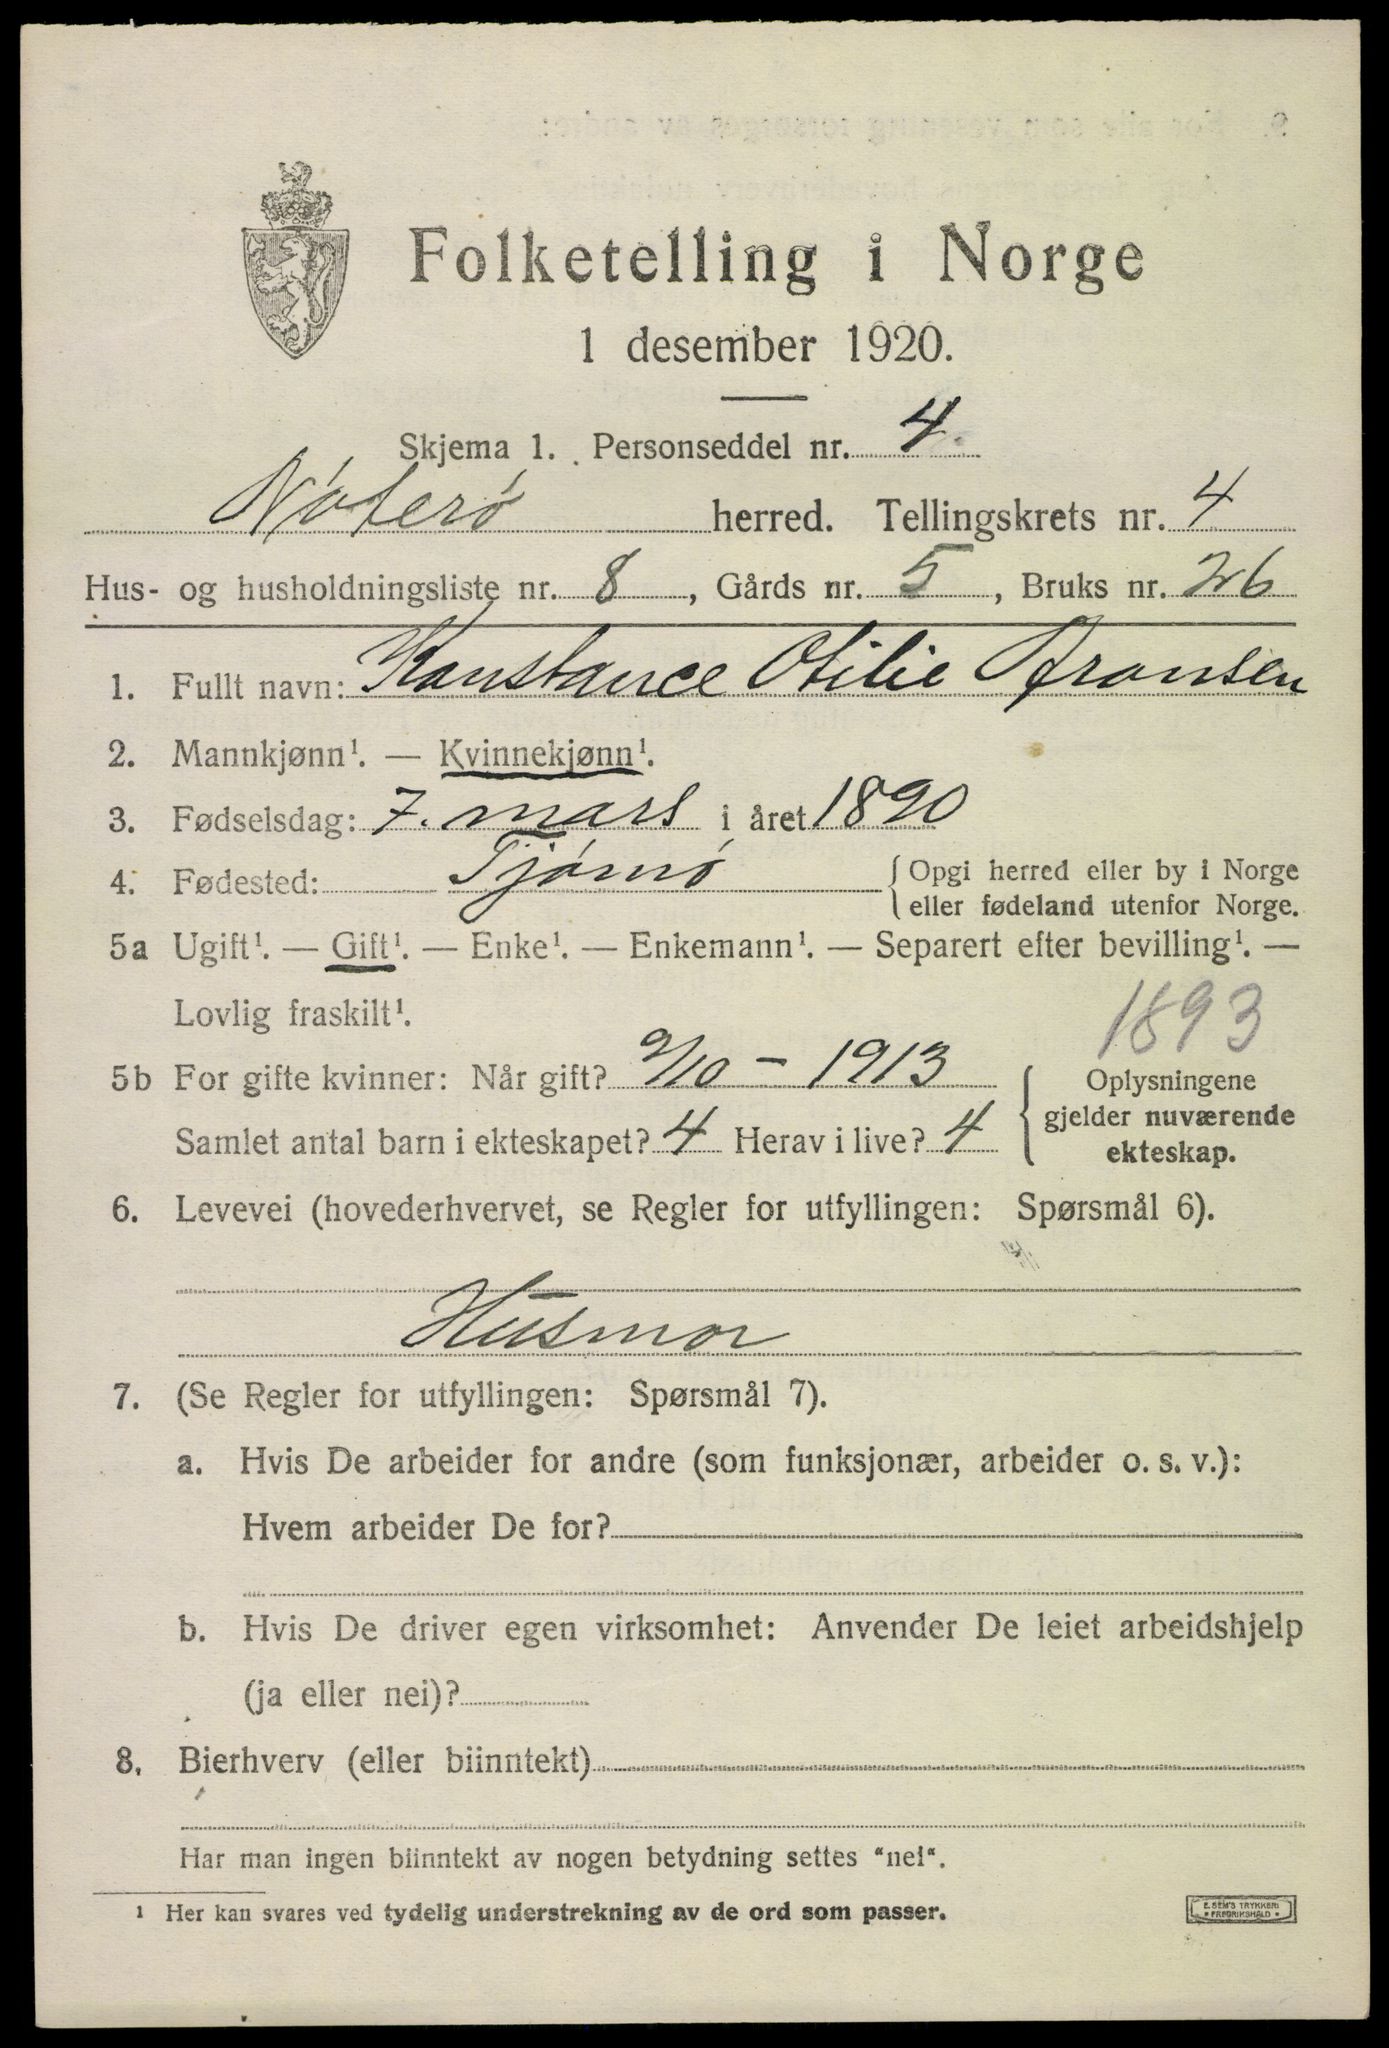 Folketelling i Norge
1 desember 1920.
Skjema 1. Personseddel nr. 4.
Nøterø herred. Tellingskrets nr. 4
Hus- og husholdningsliste nr. 8, Gårds nr. 5, Bruks nr. 26
1. Fullt navn: Konstance Otilie Aronsen
2. Mannkjønn¹. — Kvinnekjønn¹.
3. Fødselsdag: 7. mars i året 1890
4. Fødested: Tjømø { Opgi herred eller by i Norge
eller fødeland utenfor Norge.
5a Ugift¹. — Gift¹. — Enke¹. — Enkemann¹. — Separert efter bevilling¹. —
Lovlig fraskilt¹.
1893
5b For gifte kvinner: Når gift? 9/10 - 1913
Samlet antal barn i ekteskapet? 4 Herav i live? 4
{ Oplysningene
gjelder nuværende
ekteskap.
6. Levevei (hovederhvervet, se Regler for utfyllingen: Spørsmål 6).
Husmor
7. (Se Regler for utfyllingen: Spørsmål 7).
a. Hvis De arbeider for andre (som funksjonær, arbeider o. s. v.):
Hvem arbeider De for?
b. Hvis De driver egen virksomhet: Anvender De leiet arbeidshjelp
(ja eller nei)?
8. Bierhverv (eller biinntekt)
Har man ingen biinntekt av nogen betydning settes "nei".
¹ Her kan svares ved tydelig understrekning av de ord som passer.
E. SEM'S TRYKKERI
• FREDRIKSHALD •